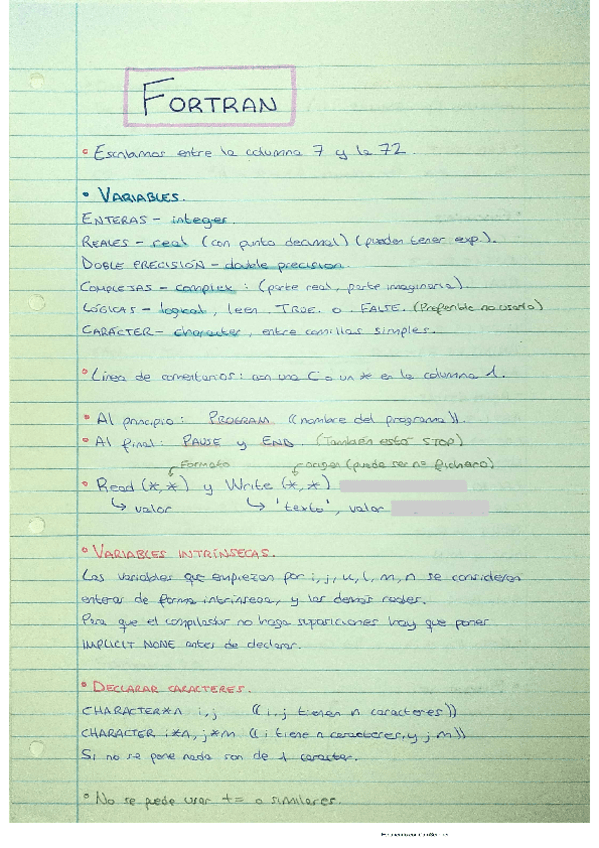 FORTRAN
• Escribimos entre la columna 7 y la 72.
• VARIABLES.
ENTERAS - integer.
REALES - real (con punto decimal) (pueden tener exp.).
DOBLE PRECISIÓN - double precision.
COMPLEJAS - complex : (parte real, parte imaginaria).
LÓGICAS - logical, leen .TRUE. o .FALSE. (Preferible no usarlo)
CARÁCTER - character, entre comillas simples.
• Línea de comentarios: con una C o un * en la columna 1.
• Al principio: PROGRAM ((nombre del programa)).
• Al final: PAUSE y END. (También está STOP)
Formato origen (puede ser nº fichero)
• Read (*,*) y Write (*,*)
↳ valor ↳ 'texto', valor
• VARIABLES INTRÍNSECAS.
Las variables que empiezan por i, j, k, l, m, n se consideran
enteras de forma intrínseca, y las demás reales.
Para que el compilador no haga suposiciones hay que poner
IMPLICIT NONE antes de declarar.
• DECLARAR CARACTERES.
CHARACTER*n i,j ((i, j tienen n caracteres))
CHARACTER i*n, j*m ((i tiene n caracteres, y j m))
Si no se pone nada son de 1 caracter.
• No se puede usar += o similares.